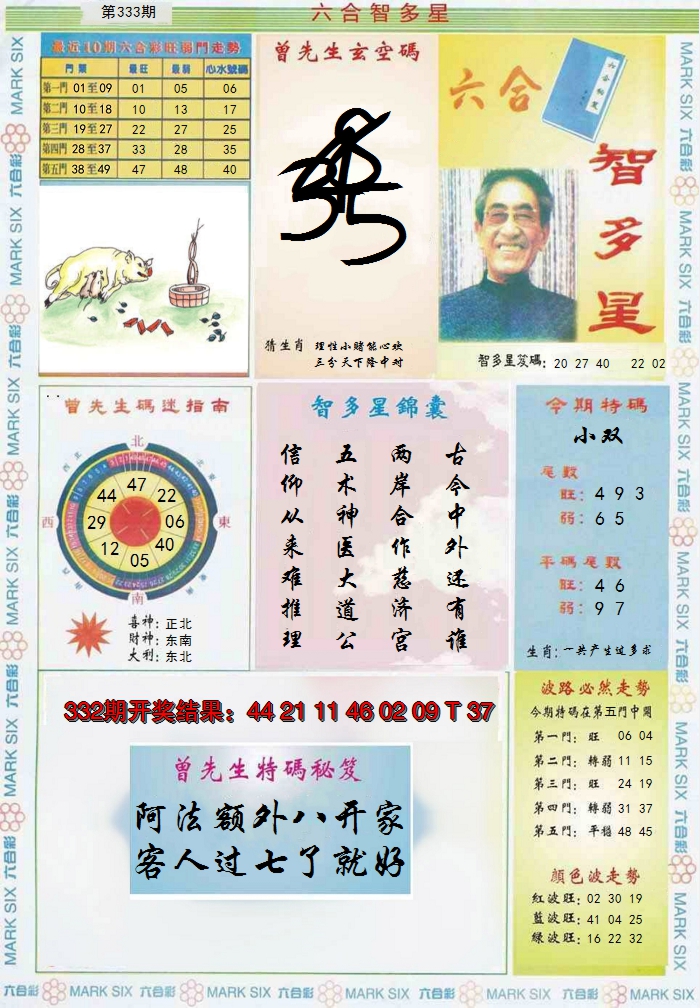 第333期
六合智多星
最近10期六合彩旺弱門走勢
門類 最旺 最弱 心水號碼
第一門 01至09 01 05 06
第二門 10至18 10 13 17
第三門 19至27 22 27 25
第四門 28至37 33 28 35
第五門 38至49 47 48 40
曾先生玄空碼
猜生肖 理性小赌能心欢
三分天下隆中对
六合
智多星
智多星笈碼: 20 27 40 22 02
曾先生碼迷指南
北
西北
東北
西
東
南
47
22
06
40
05
12
29
44
喜神: 正北
財神: 东南
大利: 东北
智多星錦囊
古今中外还有谁
两岸合作慈济宫
五术神医大道公
信仰从来难推理
今期特碼
小双
尾數
旺: 4 9 3
弱: 6 5
平碼尾數
旺: 4 6
弱: 9 7
生肖: 一共产生过多求
332期开奖结果: 44 21 11 46 02 09 T 37
曾先生特碼秘笈
阿法额外八开家
客人过七了就好
波路必然走勢
今期特碼在第五門中開
第一門: 旺 06 04
第二門: 轉弱 11 15
第三門: 旺 24 19
第四門: 轉弱 31 37
第五門: 平穩 48 45
顏色波走勢
紅波旺: 02 30 19
藍波旺: 41 04 25
綠波旺: 16 22 32
六合彩 MARK SIX 六合彩 MARK SIX 六合彩 MARK SIX 六合彩 MARK SIX